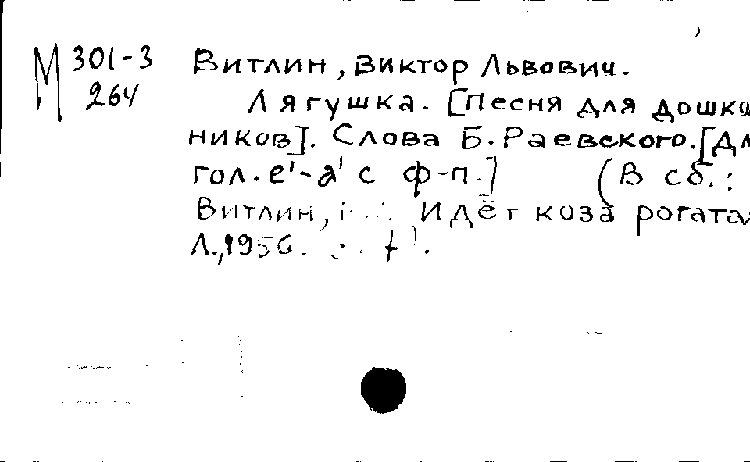 М 301-3
264
Витлин, Виктор Львович.
Лягушка. [Песня для дошко
ников]. Слова Б. Раевского. [Дл
гол. e'-a' с ф-п.] (В сб.:
Витлин, Идёт коза рогата
Л., 1956.